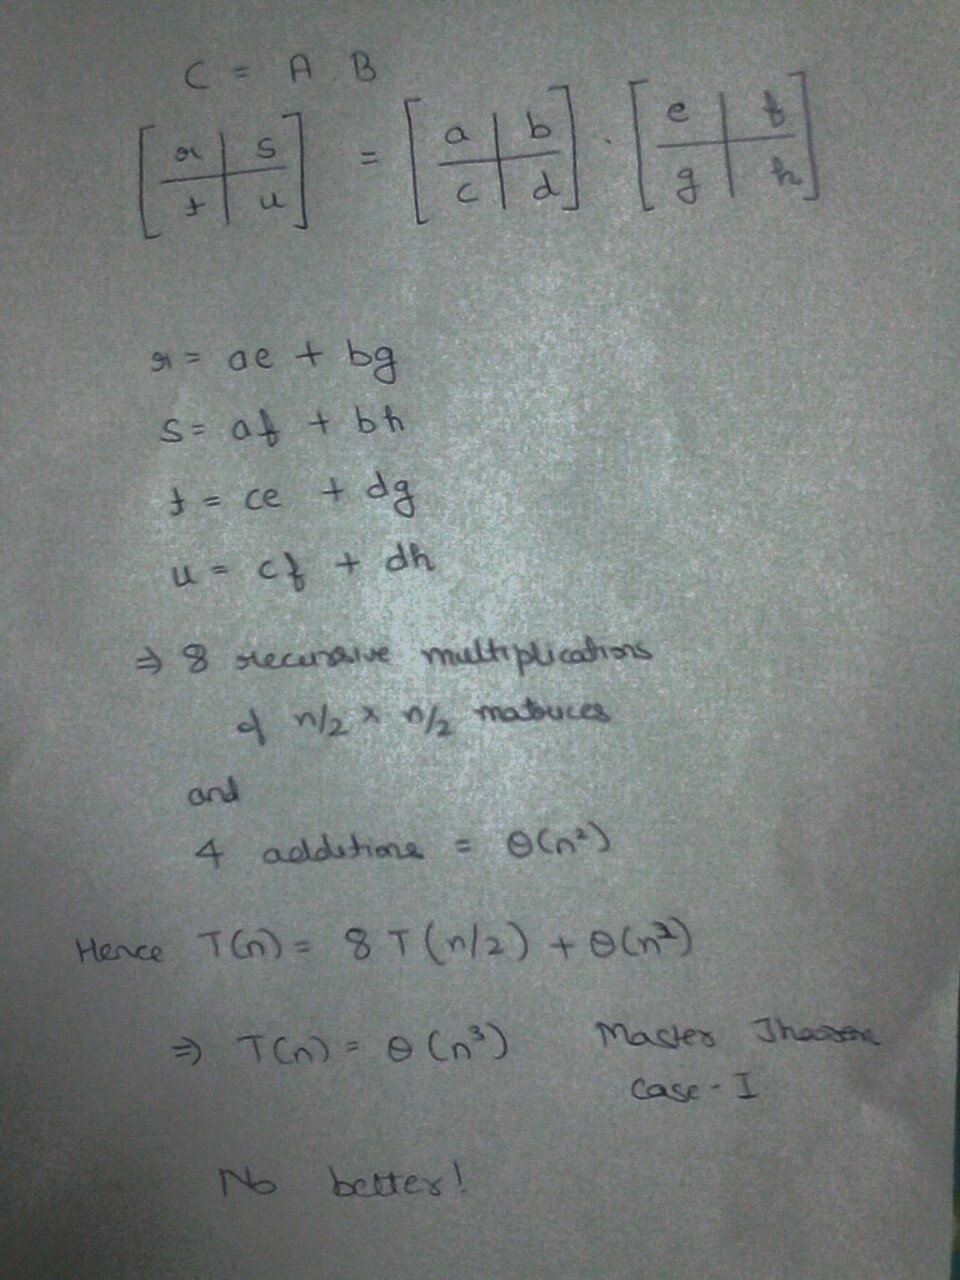 C = A B
[ r | s ] = [ a | b ] . [ e | f ]
[ t | u ] [ c | d ] [ g | h ]
r = ae + bg
s = af + bh
t = ce + dg
u = cf + dh
⇒ 8 recursive multiplications
of n/2 x n/2 matrices
and
4 additions = Θ(n²)
Hence T(n) = 8 T (n/2) + Θ(n²)
⇒ T(n) = Θ (n³) Master Theorem
Case - I
No better!